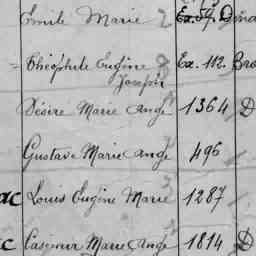 Emile Marie 2 Ex. 
= Théophile Eugène Ex. 112. Bro
Joseph
Désiré Marie Ange 1364 D
Gustave Marie Ange 496
ac Louis Eugène Marie 3 1287
c Casimir Marie Ange 1814 D